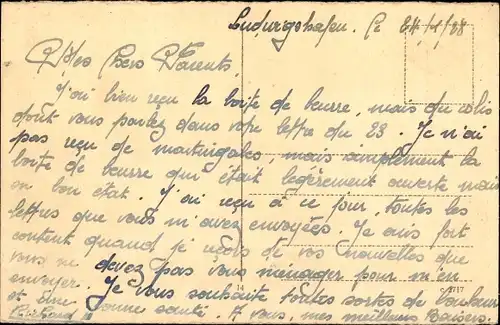 Ludwigshafen, le 24/1/28
Mes Chers Parents,
J'ai bien reçu la boite de beurre, mais du colis
dont vous parlez dans votre lettre du 23. Je n'ai
pas reçu de martingales, mais simplement la
boite de beurre qui était légèrement ouverte mais
en bon état. J'ai reçu à ce jour, toutes les
lettres que vous m'avez envoyées. Je suis fort
content quand je reçois de vos nouvelles que
vous ne devez pas vous ménager pour m'en
envoyer. Je vous souhaite toutes sortes de bonheur
et une bonne santé. A vous, mes meilleurs Baisers.
14